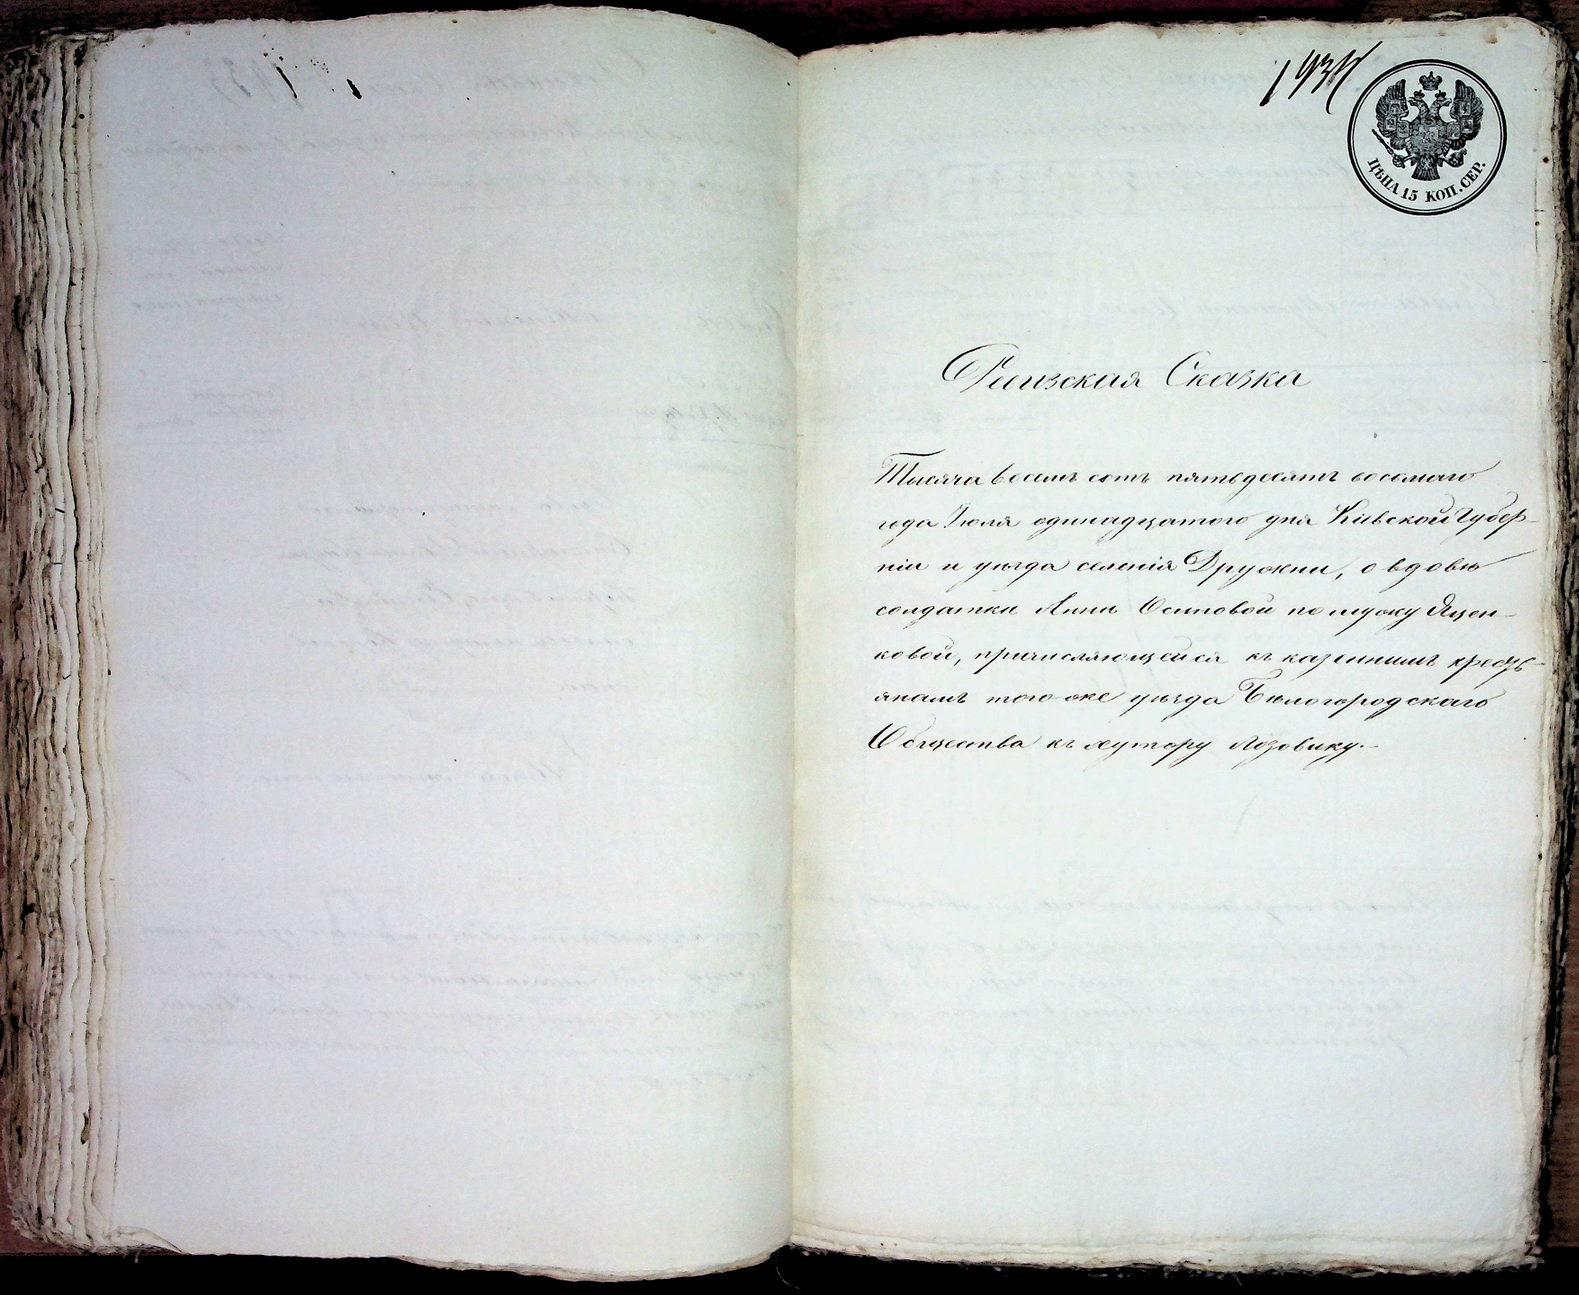 1934
ЦѢНА 15 КОП. СЕР.
Ревизская Сказка
Тысяча восемь сотъ пятьдесятъ восьмаго
года Іюля одинадцатого дня Кіевской Губер-
ніи и уѣзда селенія Дружни, о вдовѣ
солдатки Анны Осиповой по мужу Яцен-
ковой, причисляющейся къ казеннымъ кресть-
янамъ того-же уѣзда Бѣлогородскаго
Общества къ хутору Лозовику.-